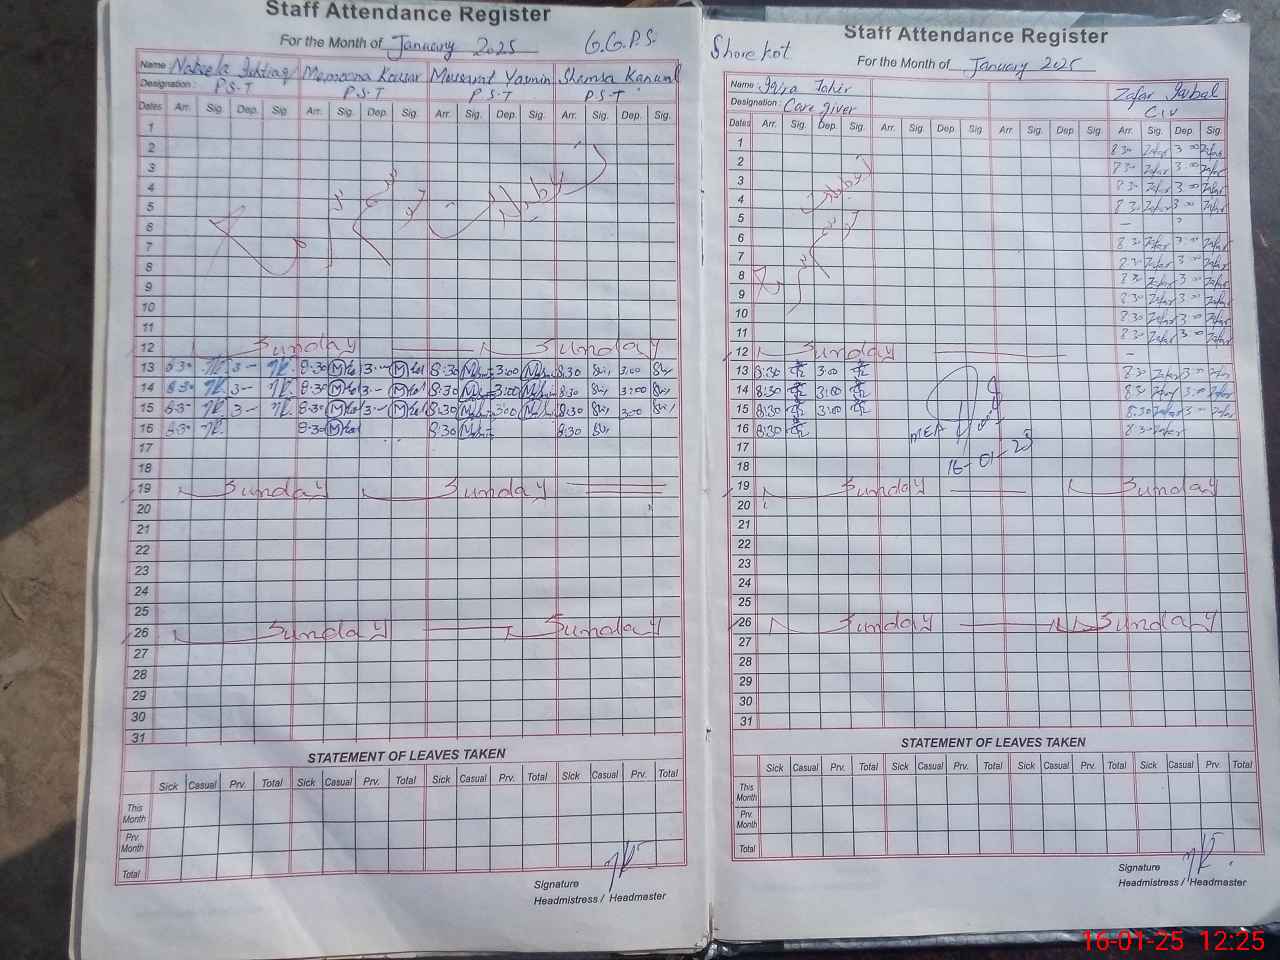 Staff Attendance Register
For the Month of January 2025 G.G.P.S.
Name Nabeela Ishtiaq Memoona Kausar Musarrat Yasmin Shamsa Kanwal
Designation : P.S.T P.S.T P.S.T P.S.T
Dates Arr. Sig. Dep. Sig. Arr. Sig. Dep. Sig. Arr. Sig. Dep. Sig. Arr. Sig. Dep. Sig.
1
2
3
4
5
6
7
8
9
10
11
12 Sunday Sunday
13 8:30 3 8:30 3 8:30 3:00 8:30 3:00
14 8:30 3 8:30 3 8:30 3:00 8:30 3:00
15 8:30 3 8:30 3 8:30 3:00 8:30 3:00
16 8:30 8:30 8:30 8:30
17
18
19 Sunday Sunday
20
21
22
23
24
25
26 Sunday Sunday
27
28
29
30
31
STATEMENT OF LEAVES TAKEN
Sick Casual Prv. Total Sick Casual Prv. Total Sick Casual Prv. Total Sick Casual Prv. Total
This Month
Prv. Month
Total
Signature
Headmistress / Headmaster
Staff Attendance Register
Shorekot For the Month of January 2025
Name : Iqra Tahir Zafar Iqbal
Designation : Care giver C.IV
Dates Arr. Sig. Dep. Sig. Arr. Sig. Dep. Sig. Arr. Sig. Dep Sig. Arr. Sig. Dep. Sig.
1 8:30 Zafar 3:00 Zafar
2 8:30 Zafar 3:00 Zafar
3 8:30 Zafar 3:00 Zafar
4 8:30 Zafar 3:00 Zafar
5 –
6 8:30 Zafar 3:00 Zafar
7 8:30 Zafar 3:00 Zafar
8 8:30 Zafar 3:00 Zafar
9 8:30 Zafar 3:00 Zafar
10 8:30 Zafar 3:00 Zafar
11 8:30 Zafar 3:00 Zafar
12 Sunday –
13 8:30 3:00 8:30 Zafar 3:00 Zafar
14 8:30 3:00 8:30 Zafar 3:00 Zafar
15 8:30 3:00 8:30 Zafar 3 Zafar
16 8:30 MEA 8:30 Zafar
17
18 16-01-25
19 Sunday Sunday
20
21
22
23
24
25
26 Sunday Sunday
27
28
29
30
31
STATEMENT OF LEAVES TAKEN
Sick Casual Prv. Total Sick Casual Prv. Total Sick Casual Prv. Total Sick Casual Prv. Total
This Month
Prv. Month
Total
Signature
Headmistress / Headmaster
16-01-25 12:25